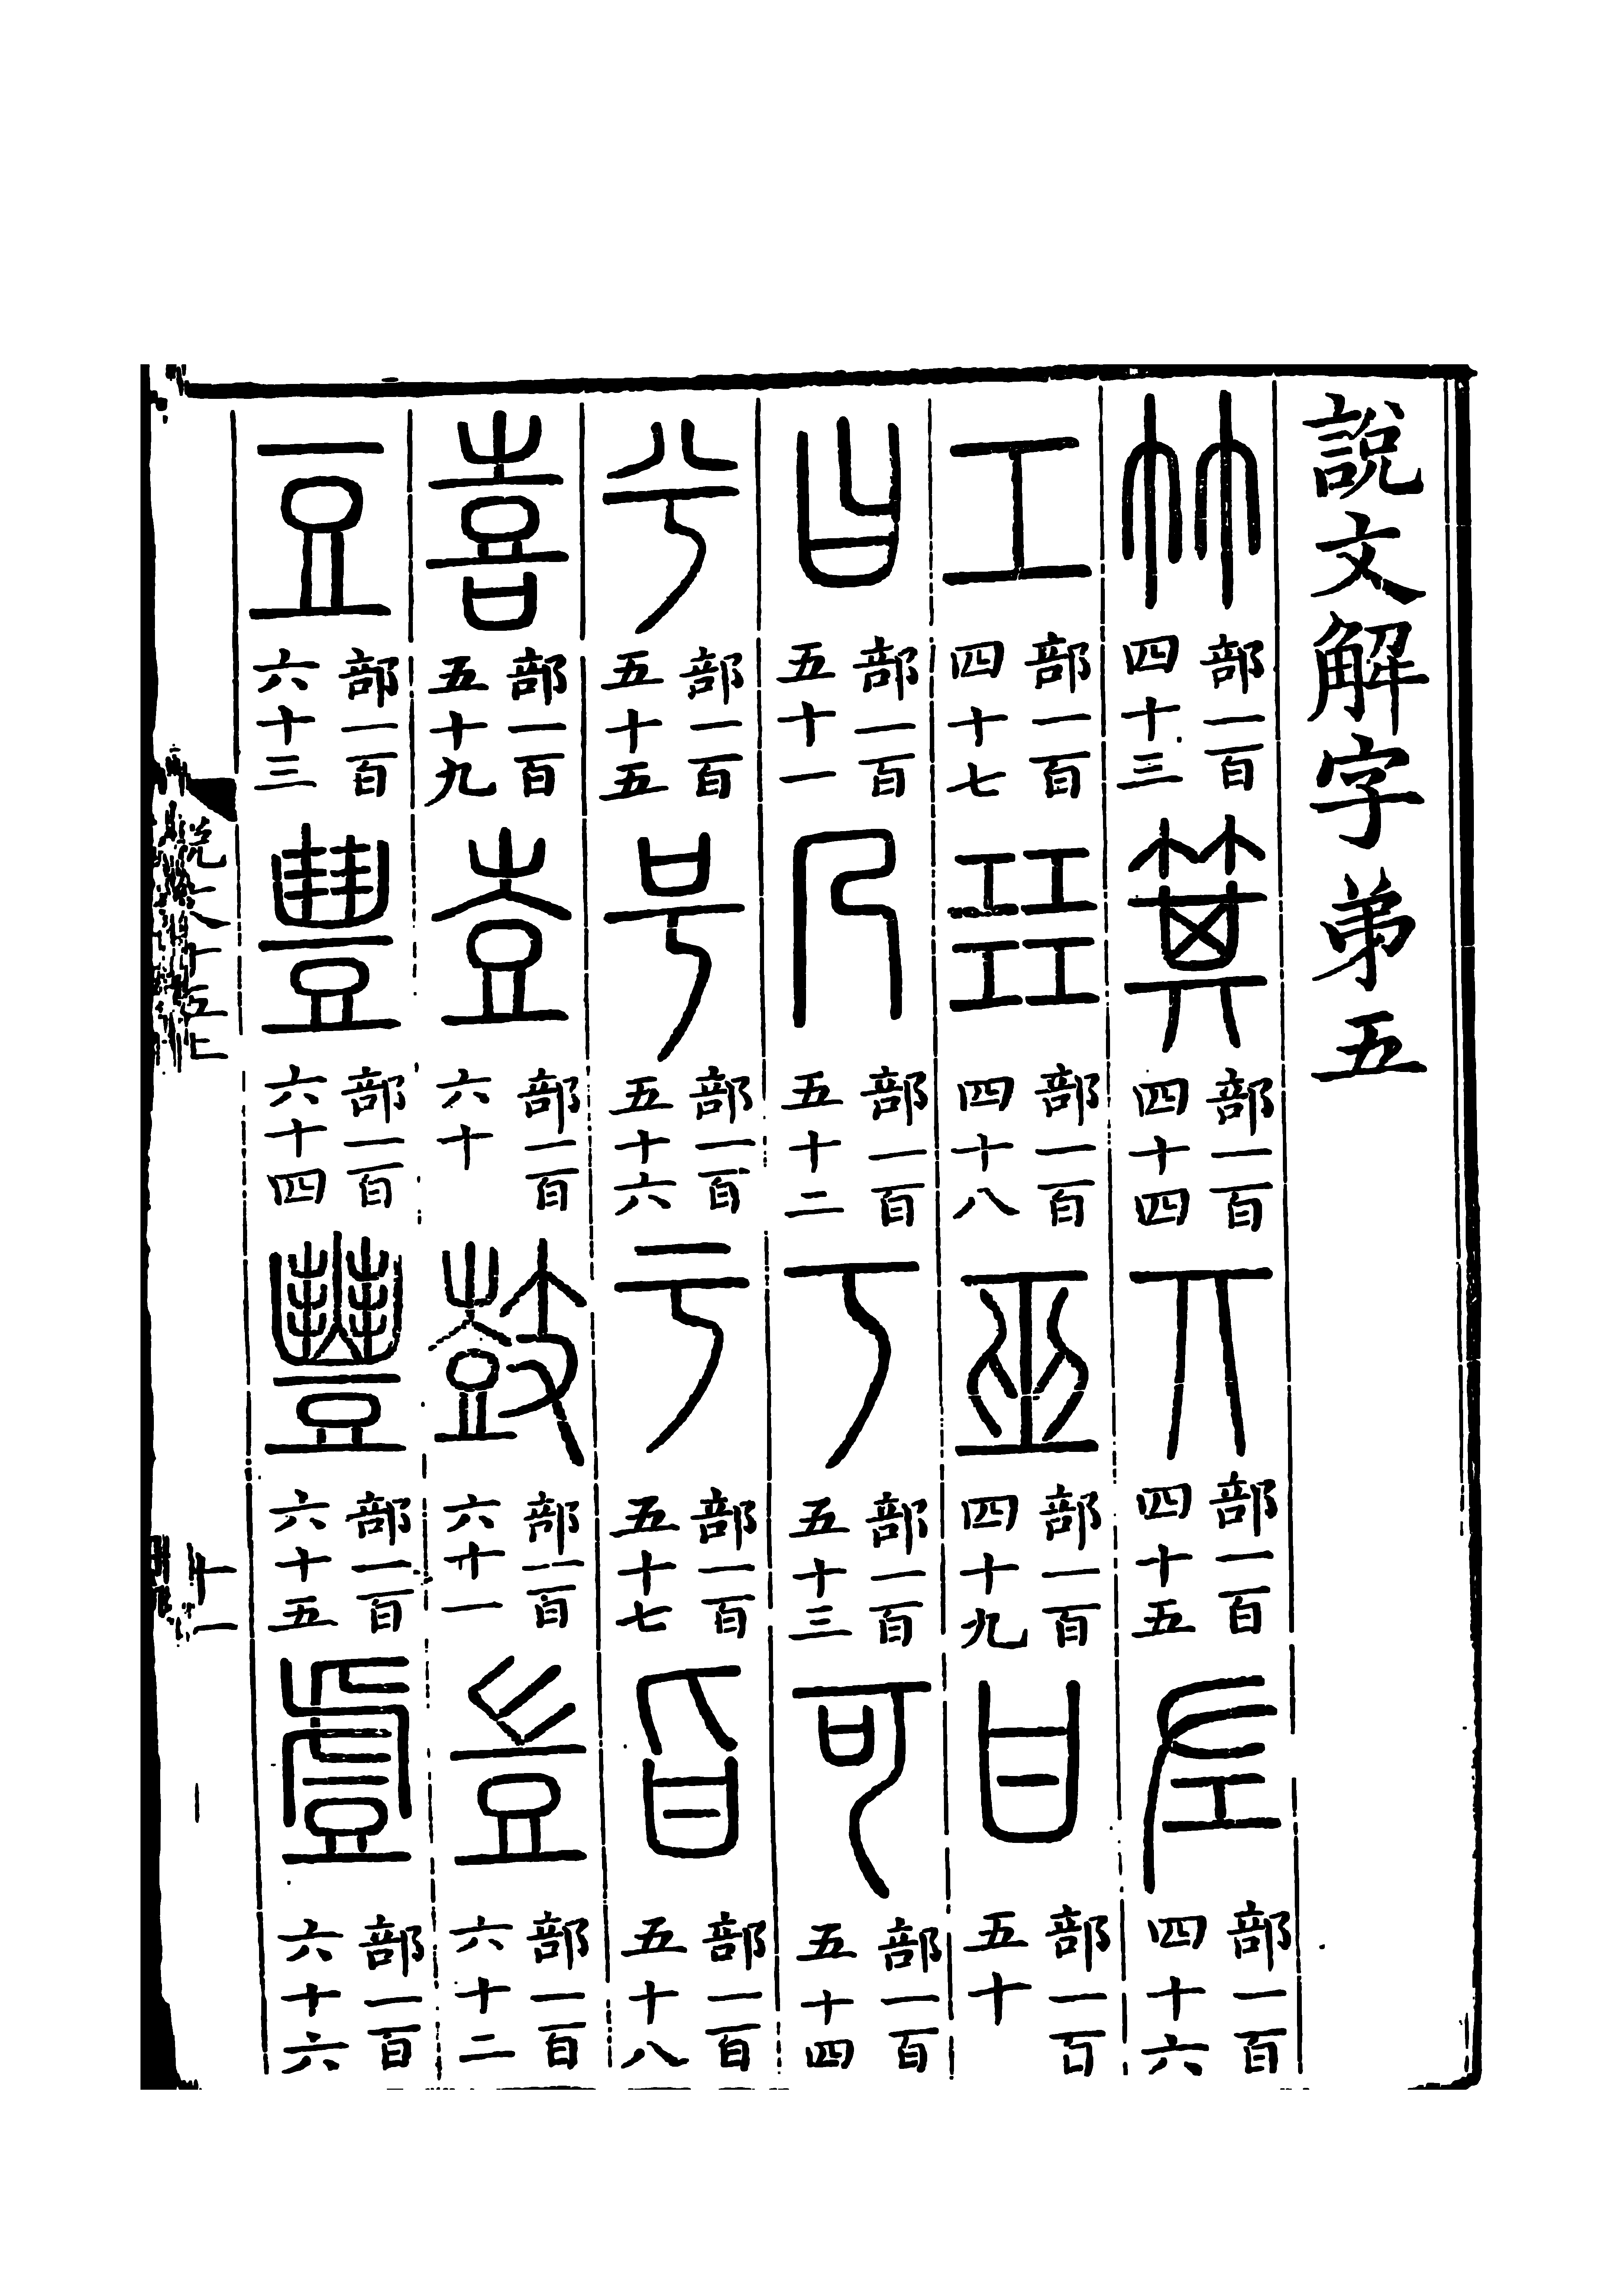 說文解字弟五
竹部一百四十三箕部一百四十四丌部一百四十五左部一百四十六
工部一百四十七㠭部一百四十八巫部一百四十九甘部一百五十
曰部一百五十一乃部一百五十二丂部一百五十三可部一百五十四
兮部一百五十五号部一百五十六亏部一百五十七旨部一百五十八
喜部一百五十九壴部一百六十鼓部一百六十一豈部一百六十二
豆部一百六十三豊部一百六十四豐部一百六十五䖒部一百六十六
十五上
十一